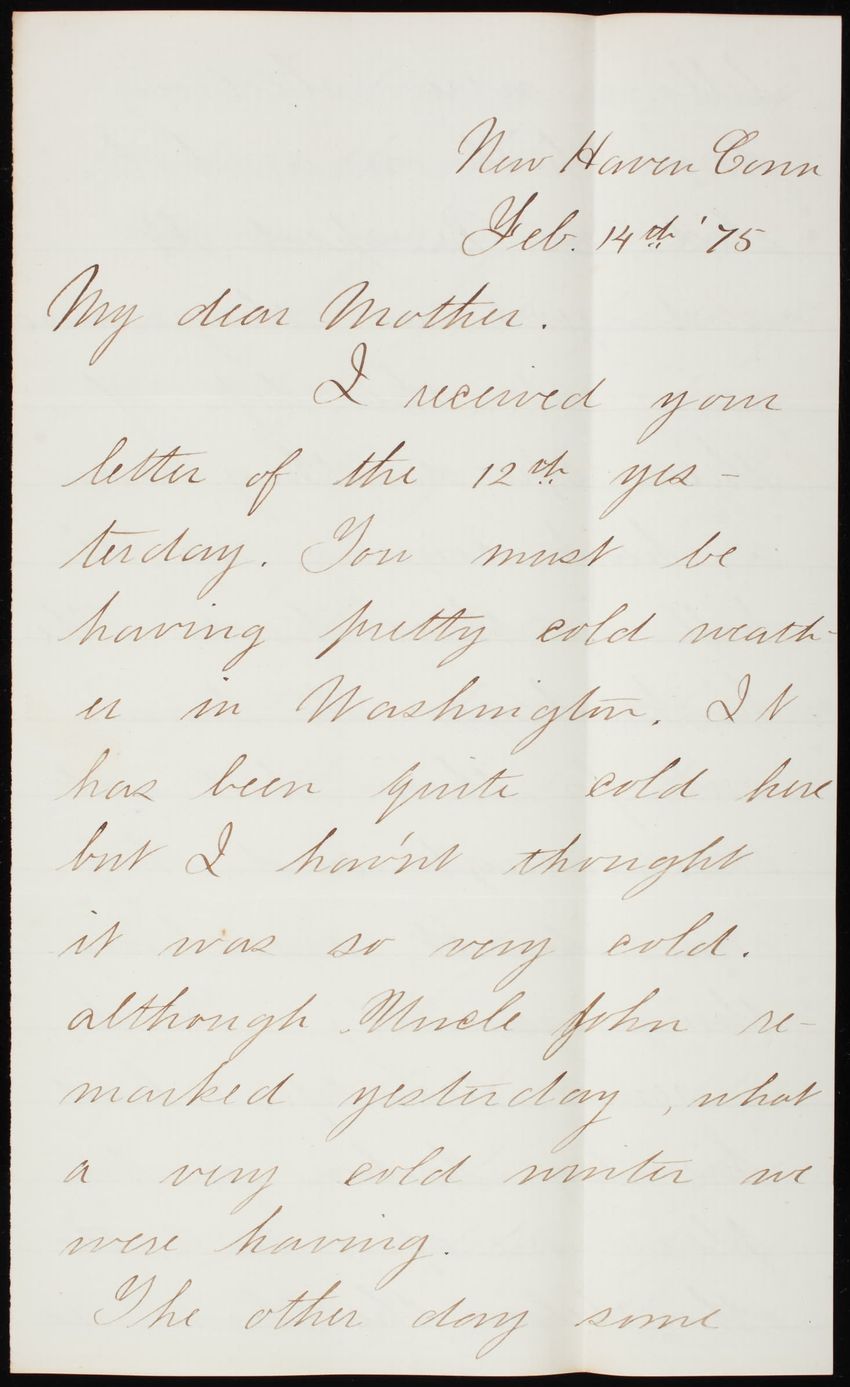 New Haven Conn
Feb. 14th '75
My dear Mother.
I received your
letter of the 12th yes-
terday. You must be
having pretty cold weath-
er in Washington. It
has been quite cold here
but I hav'nt thought
it was so very cold.
although Uncle John re-
marked yesterday, what
a very cold winter we
were having.
The other day some